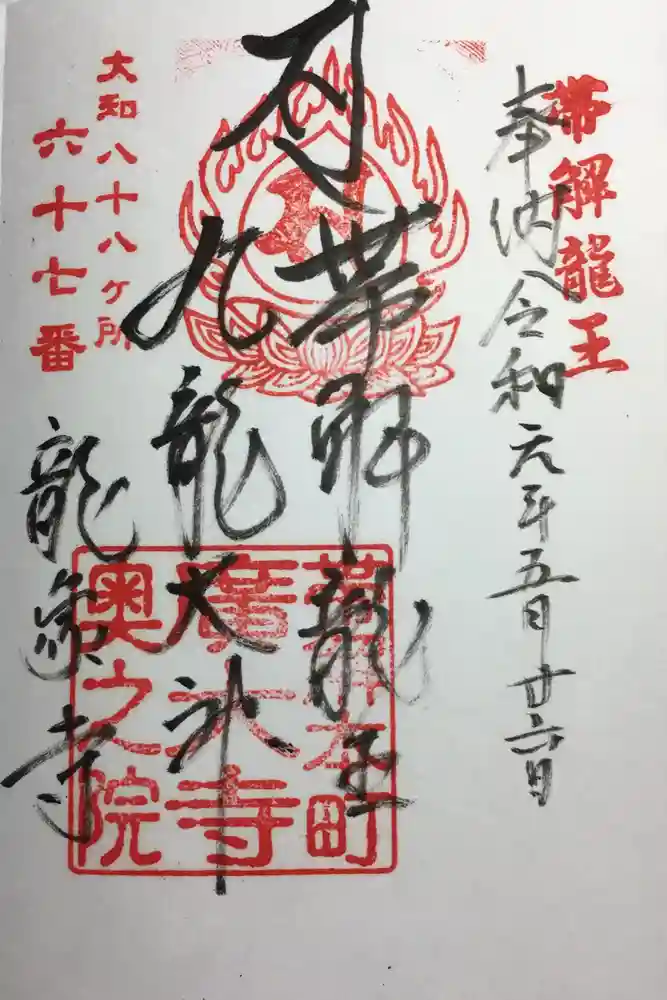 帯解龍王
奉納令和元年五月廿六日
帯解龍王
九龍大神
大和八十八ヶ所
六十七番
龍象寺
帯解本町
廣大寺
奥之院